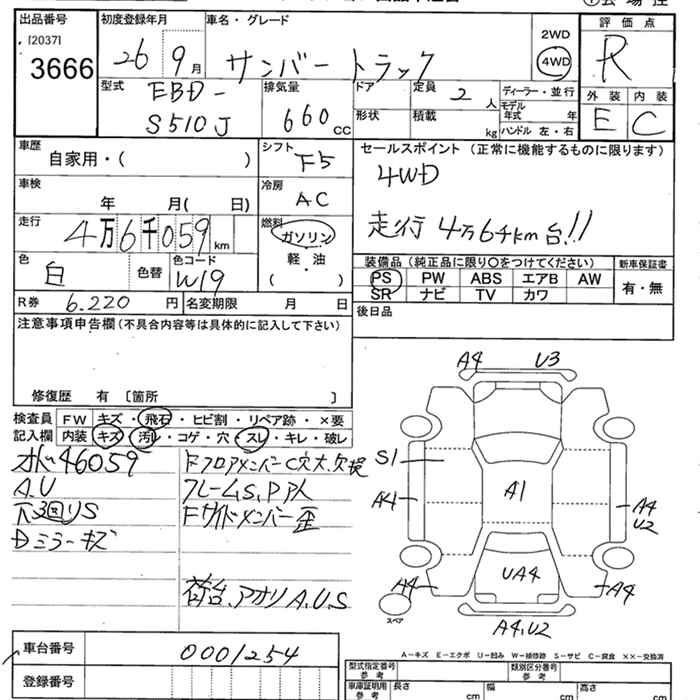 出品番号
[2037]
3666
初度登録年月
26 9月
車名・グレード
サンバートラック
2WD
4WD
評価点
R
型式
EBD-
S510J
排気量
660cc
ドア
定員 2人
形状
積載 kg
ディーラー・並行
モデル年式 年
ハンドル 左・右
外装 内装
E C
車歴
自家用・( )
シフト
F5
セールスポイント (正常に機能するものに限ります)
4WD
走行4万6千km台!!
車検
年 月( 日)
冷房
AC
走行
4万6千059km
燃料
ガソリン
軽・油
( )
色
白
色替
色コード
W19
装備品 (純正品に限り○をつけてください)
PS PW ABS エアB AW
SR ナビ TV カワ
新車保証書
有・無
R券 6.220円
名変期限 月 日
後日品
注意事項申告欄(不具合内容等は具体的に記入して下さい)
修復歴 有 〔箇所 〕
検査員記入欄
FW キズ・飛石・ヒビ割・リペア跡・×要
内装 キズ・汚れ・コゲ・穴・スレ・キレ・破レ
オド46059
A.U
下3回りS
Dミラーキズ
FフロアメンバーC穴大、欠損
フレームS,Pアト
Fサイドメンバー歪
荷台、アオリA.U.S
A4 U3
S1
A4
A1
A4
U2
UA4
A4
A4
A4,U2
スペア
A−キズ E−エクボ U−凹み W−補修跡 S−サビ C−腐食 ××−交換済
車台番号
0001254
登録番号
型式指定番号 参考
類別区分番号 参考
車庫証明用 参考
長さ cm
幅 cm
高さ cm